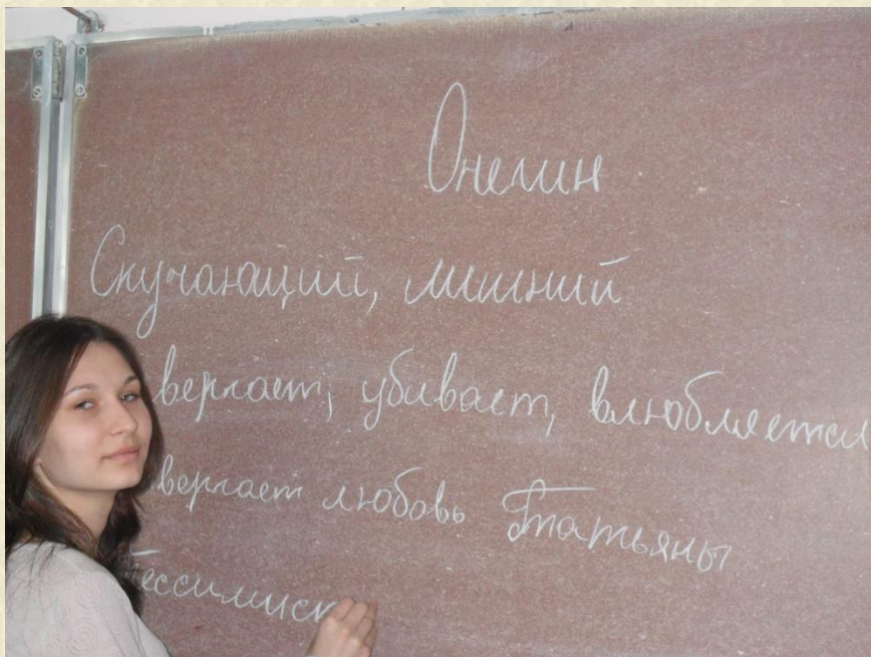 Онегин
Скучающий, лишний
вергает, убивает, влюбляется
вергает любовь Татьяны
ессимист